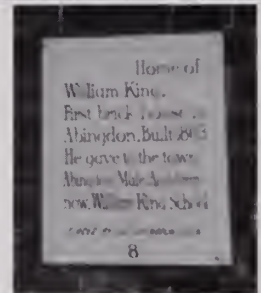 Home of
William King.
First brick house in
Abingdon. Built 1803
He gave to the town
Abingdon Male Academy
now William King School
8